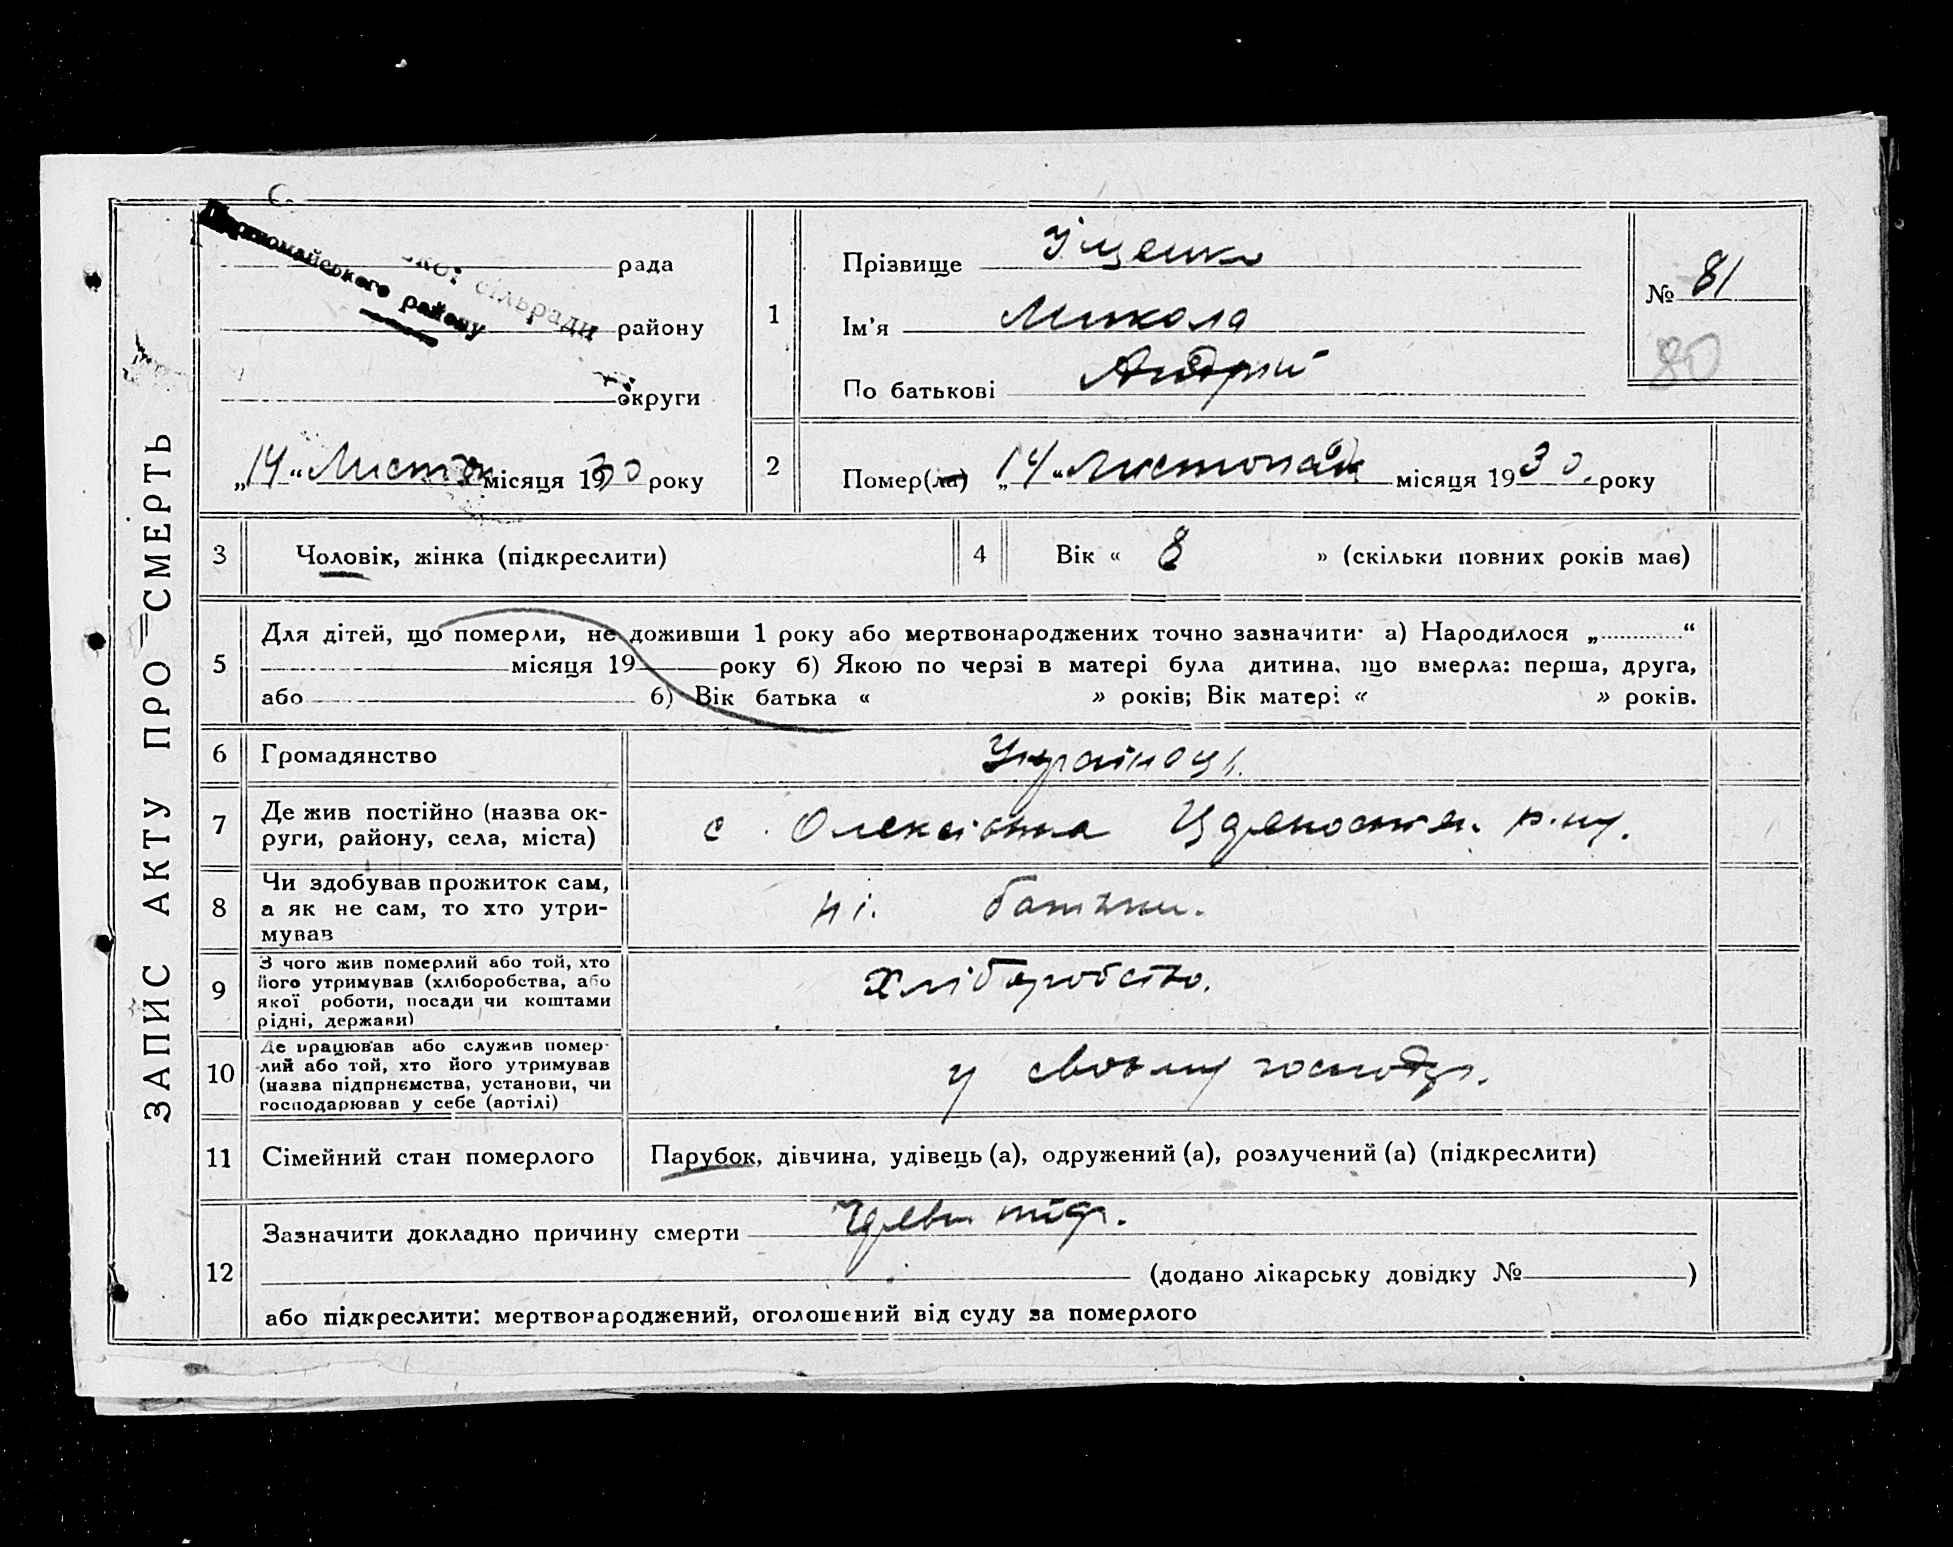 ЗАПИС АКТУ ПРО СМЕРТЬ
Первомайського району
сільради
рада
району
округи
„14“ Листоп місяця 1930 року
1
Прізвище Іщенко
Ім’я Микола
По батькові Андрій
№ 81
80
2
Помер(ла) „14“ Листопада місяця 1930. року
3
Чоловік, жінка (підкреслити)
4
Вік « 8 » (скільки повних років має)
5
Для дітей, що померли, не доживши 1 року або мертвонароджених точно зазначити: а) Народилося „ “
місяця 19 року б) Якою по черзі в матері була дитина, що вмерла: перша, друга,
або б) Вік батька « » років; Вік матері « » років.
6
Громадянство
7
Де жив постійно (назва ок-
руги, району, села, міста)
с. Олексіївка р-ну.
8
Чи здобував прожиток сам,
а як не сам, то хто утри-
мував
ні. батьки.
9
З чого жив померлий або той, хто
його утримував (хліборобства, або
якої роботи, посади чи коштами
рідні, держави)
Хліборобство.
10
Де працював або служив помер-
лий або той, хто його утримував
(назва підприємства, установи, чи
господарював у себе (артілі)
у своєму господ.
11
Сімейний стан померлого
Парубок, дівчина, удівець (а), одружений (а), розлучений (а) (підкреслити)
12
Зазначити докладно причину смерти
(додано лікарську довідку № )
або підкреслити: мертвонароджений, оголошений від суду за померлого